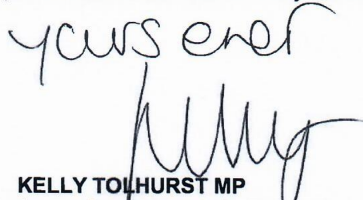 yours ever
Kelly
KELLY TOLHURST MP